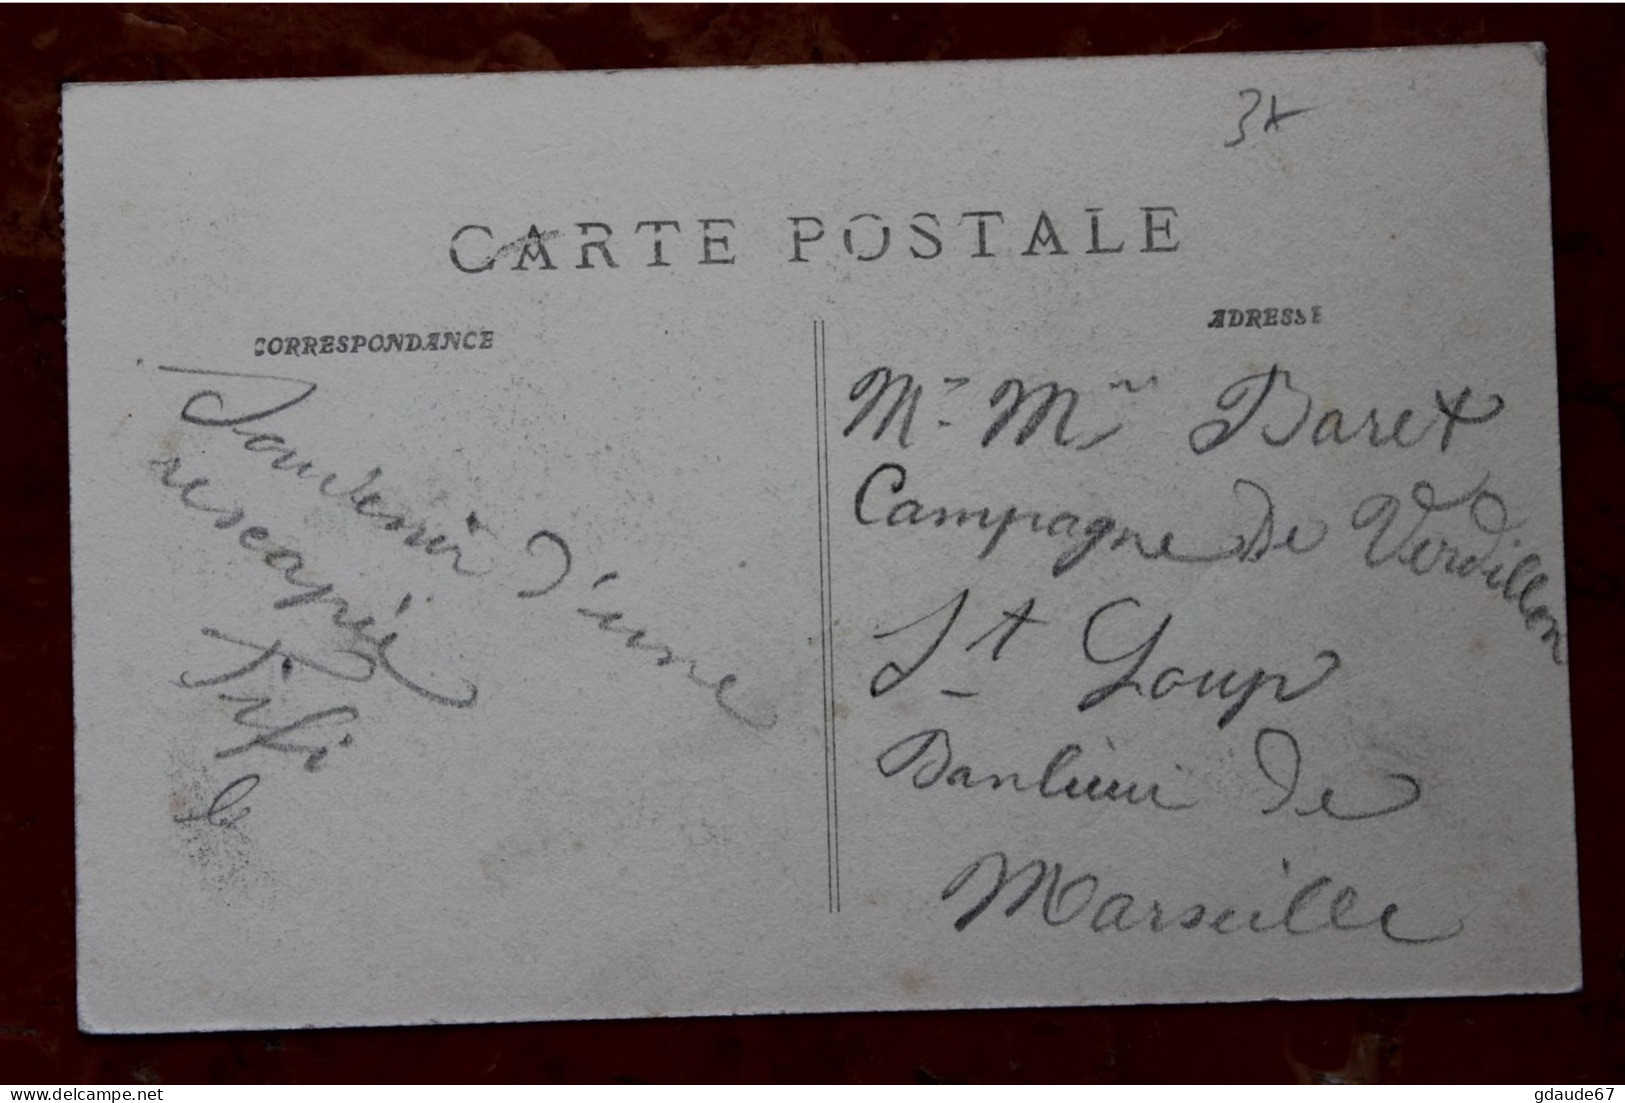 3x
CARTE POSTALE
CORRESPONDANCE
Souvenir d'une
rescapée
Fifi
ADRESSE
Mr. Mme Baret
Campagne de Verdillon
St Loup
Banlieue de
Marseille
gdaude67